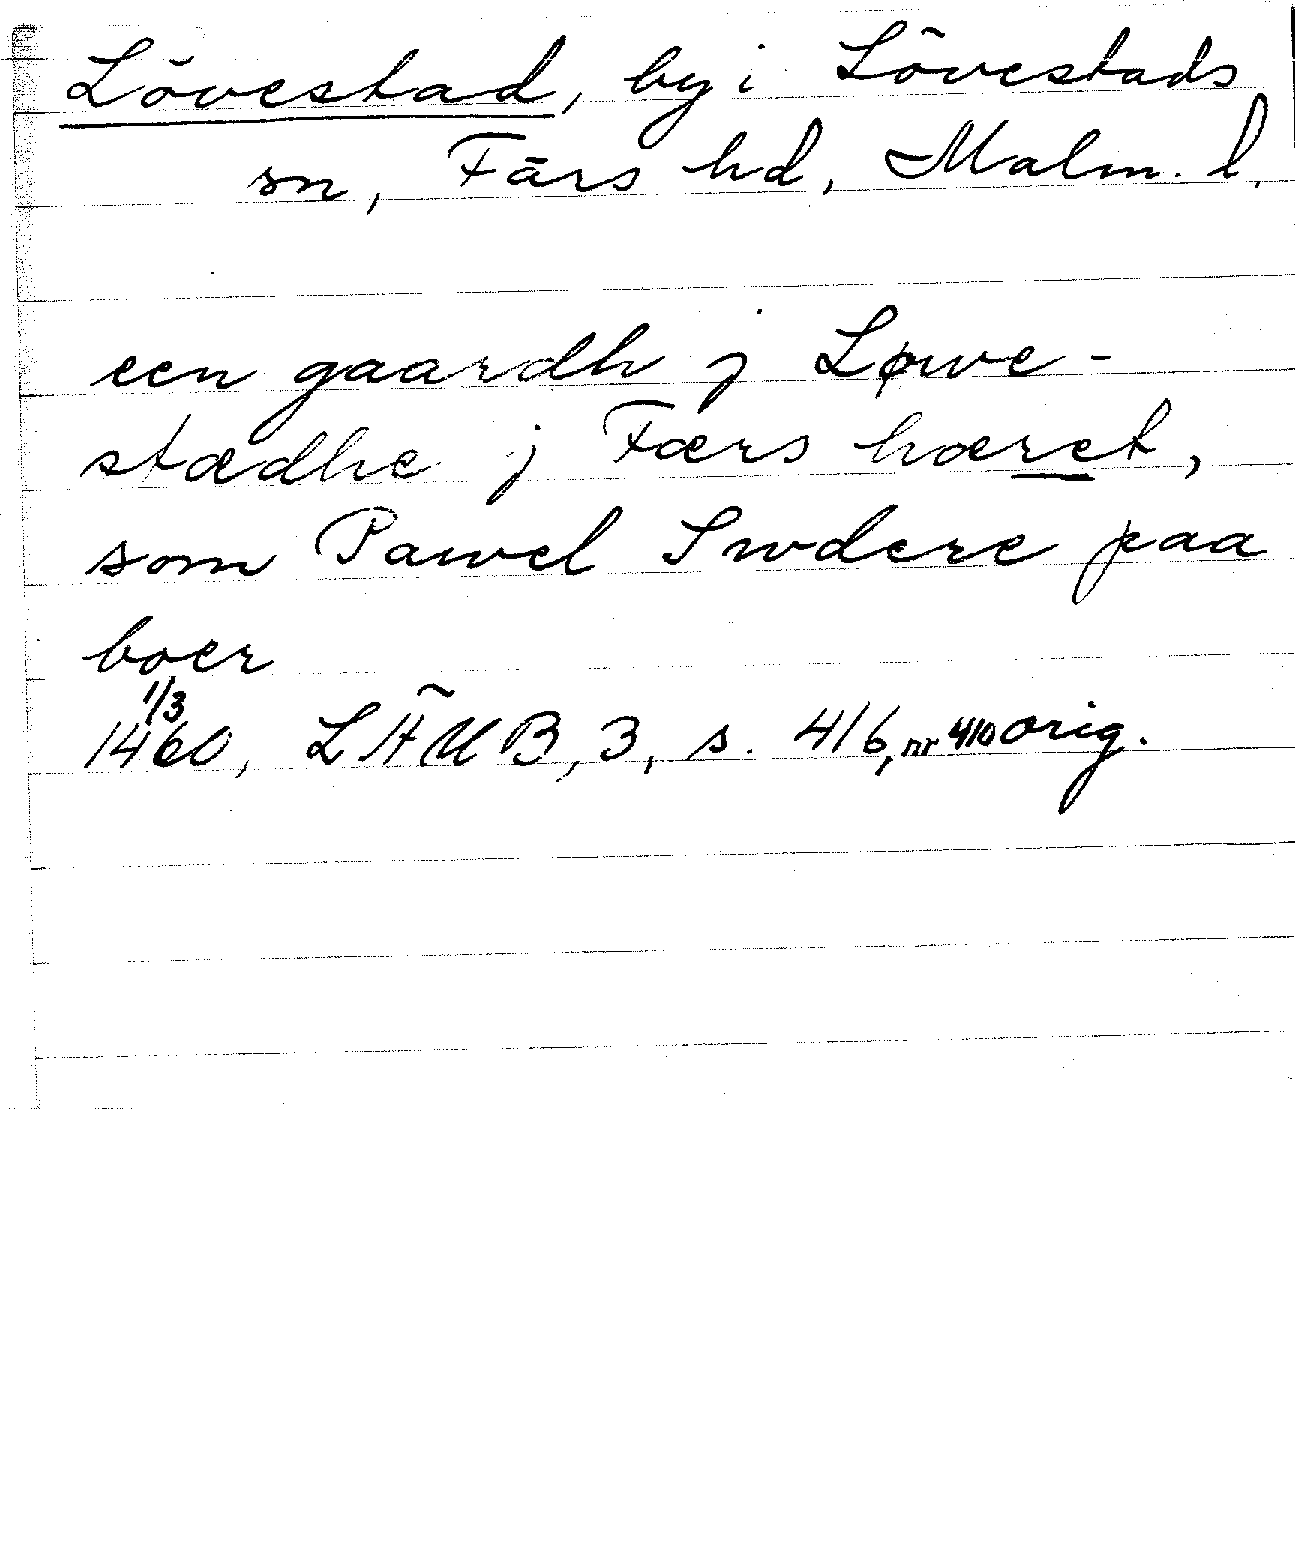 Lövestad, by i Lövestads
sn, Färs hd, Malm. l.
een gaardh j Løwe-
stædhe j Færs hæret,
som Pawel Swdere paa
boer
1/3
1460, LÄUB, 3, s. 416, nr 410 orig.